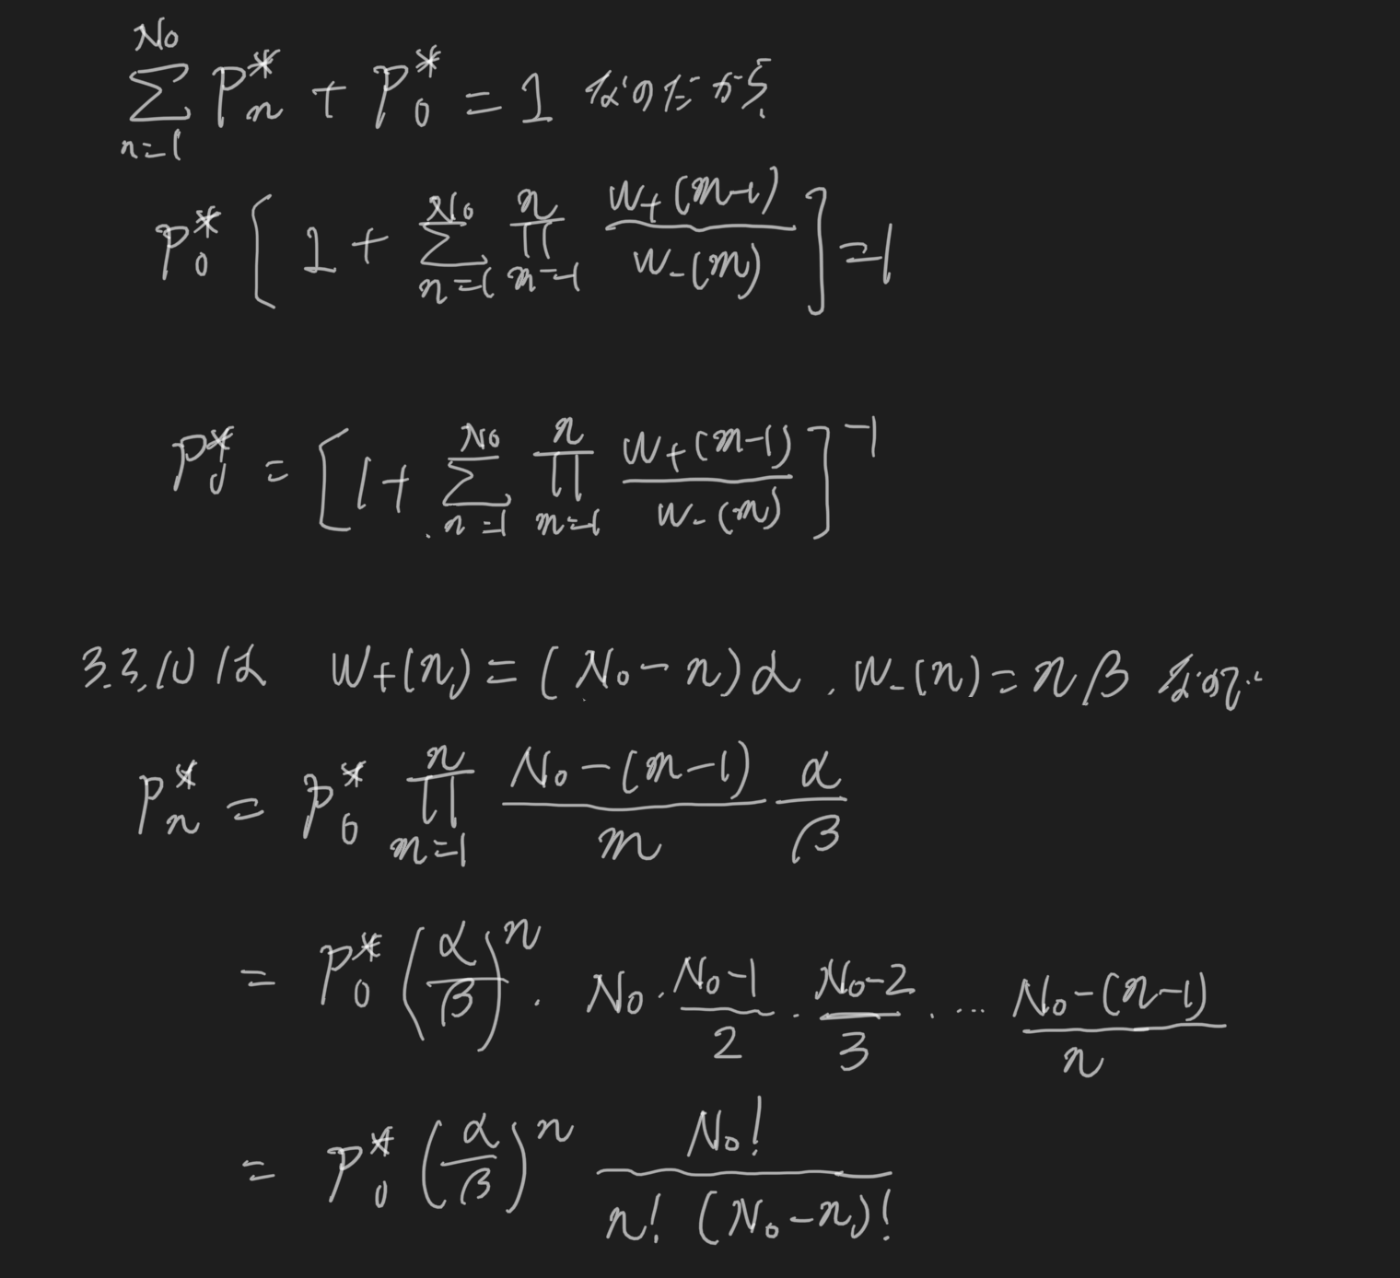 $\sum_{n=1}^{N_0} P_n^* + P_0^* = 1$ なのだから,
$P_0^* \left[ 1 + \sum_{n=1}^{N_0} \prod_{m=1}^{n} \frac{W_+(m-1)}{W_-(m)} \right] = 1$
$P_0^* = \left[ 1 + \sum_{n=1}^{N_0} \prod_{m=1}^{n} \frac{W_+(m-1)}{W_-(m)} \right]^{-1}$
3.3.10 は $W_+(n) = (N_0 - n)\alpha$ . $W_-(n) = n\beta$ なので
$P_n^* = P_0^* \prod_{m=1}^{n} \frac{N_0 - (m-1)}{m} \frac{\alpha}{\beta}$
$= P_0^* \left( \frac{\alpha}{\beta} \right)^n \cdot N_0 \cdot \frac{N_0-1}{2} \cdot \frac{N_0-2}{3} \cdot \cdots \frac{N_0-(n-1)}{n}$
$= P_0^* \left( \frac{\alpha}{\beta} \right)^n \frac{N_0!}{n! (N_0-n)!}$